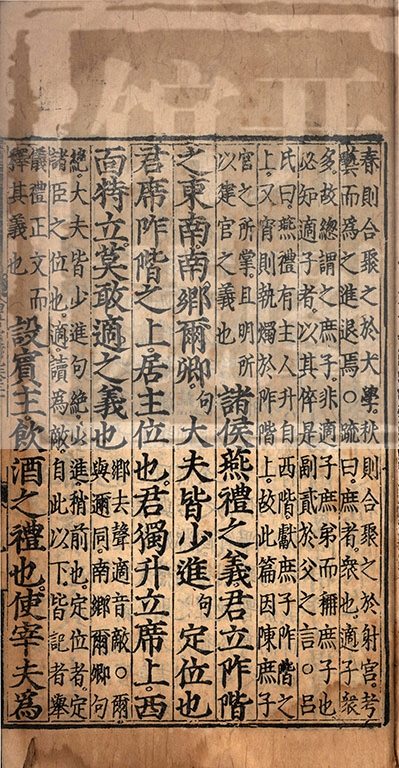 春則合聚之於大學。秋則合聚之於射宮。考
藝而為之進退焉。○疏曰。庶者。衆也。適子衆
多。故總謂之庶子。非適子庶弟而稱庶子也
必知適子者。以其倅是副貳於父之言。○呂
氏曰。燕禮有主人升自西階獻庶子阼階之
上。又宵則執燭於阼階上。故此篇因陳庶子
官之所掌。且明所
以建官之義也
諸侯燕禮之義君立阼階
之東南。南鄉爾卿。句大夫皆少進句定位也
君席阼階之上。居主位也。君獨升立席上。西
面特立。莫敢適之義也
鄉去聲適音敵。○爾
與邇同。南鄉爾卿句
絶大夫皆少進句絶少進。稍前也。定位者。定
諸臣之位也。適讀為敵。自此以下。皆記者舉
儀禮正文而
釋其義也
設賓主飲酒之禮也。使宰夫為